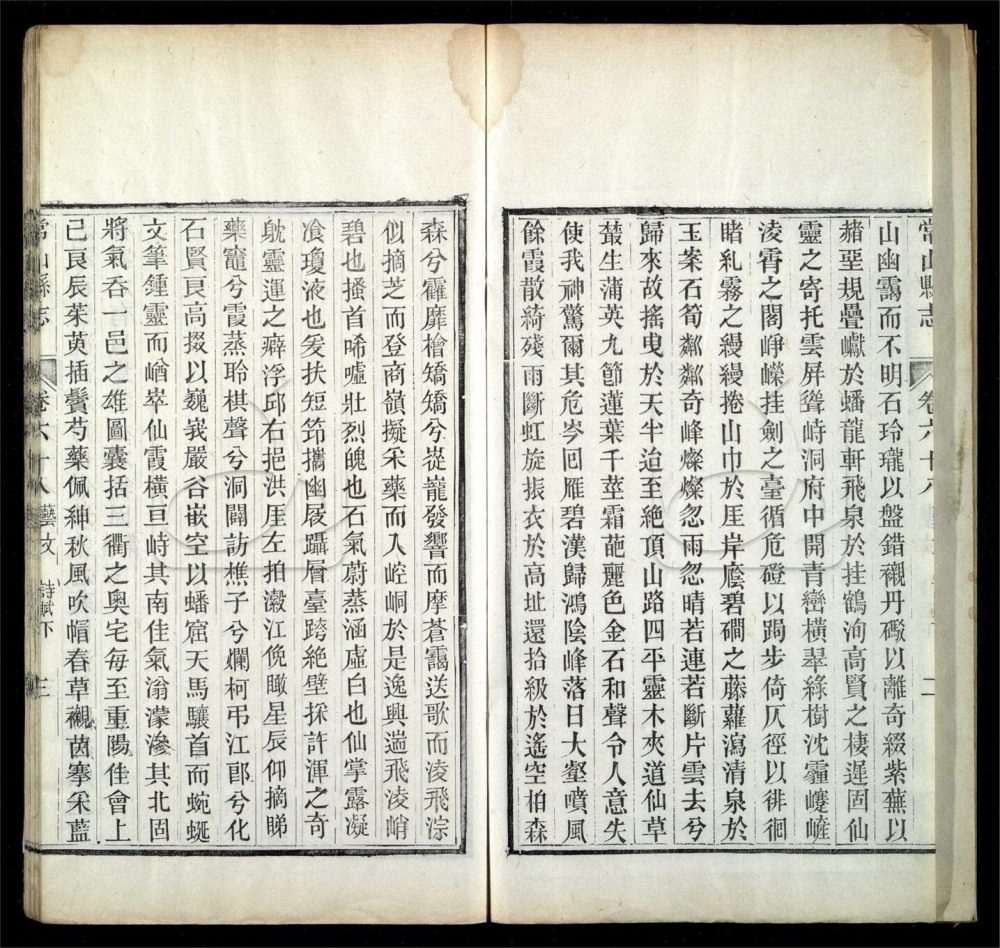 常山縣志 卷六十八 二
山幽靄而不明石玲瓏以盤錯襯丹礮以離奇綴紫蕪以
赭堊規疊巘於蟠龍軒飛泉於挂鶴洵高賢之棲遲固仙
靈之寄托雲屏聳峙洞府中開青巒橫翠綠樹沈霾嶁嵯
淩霄之閣崢嶸挂劍之臺循危磴以跼步倚仄徑以徘徊
睹糺霧之縵縵捲山巾於厓岸麾碧磵之藤蘿瀉清泉於
玉案石筍粼粼奇峰燦燦忽雨忽晴若連若斷片雲去兮
歸來故搖曳於天半迨至絶頂山路四平靈木夾道仙草
叢生蒲英九節蓮葉千莖霜葩麗色金石和聲令人意失
使我神驚爾其危岑囘雁碧漢歸鴻陰峰落日大壑噴風
餘霞散綺殘雨斷虹旋振衣於高址還拾級於遙空柏森
森兮霍靡檜矯矯兮嵸巃發響而摩蒼靄送歌而淩飛淙
似摘芝而登商嶺擬采藥而入崆峒於是逸興遄飛淩峭
碧也搔首唏噓壯烈魄也石氣蔚蒸涵虛白也仙掌露凝
飡瓊液也爰扶短筇攜幽屐躡層臺跨絶壁採許渾之奇
躭靈運之癖浮邱右挹洪厓左拍瀫江俛瞰星辰仰摘睇
藥竈兮霞蒸聆棋聲兮洞闢訪樵子兮爛柯弔江郎兮化
石賢艮高掇以巍峩嚴谷嵌空以蟠窟天馬驤首而蜿蜒
文筆鍾靈而崷崒仙霞橫亘峙其南佳氣滃濛滲其北固
將氣吞一邑之雄圖囊括三衢之奥宅每至重陽佳會上
己良辰茱萸插鬢芍藥佩紳秋風吹帽春草襯茵搴采藍
常山縣志 卷六十八 藝文 詩賦下 三